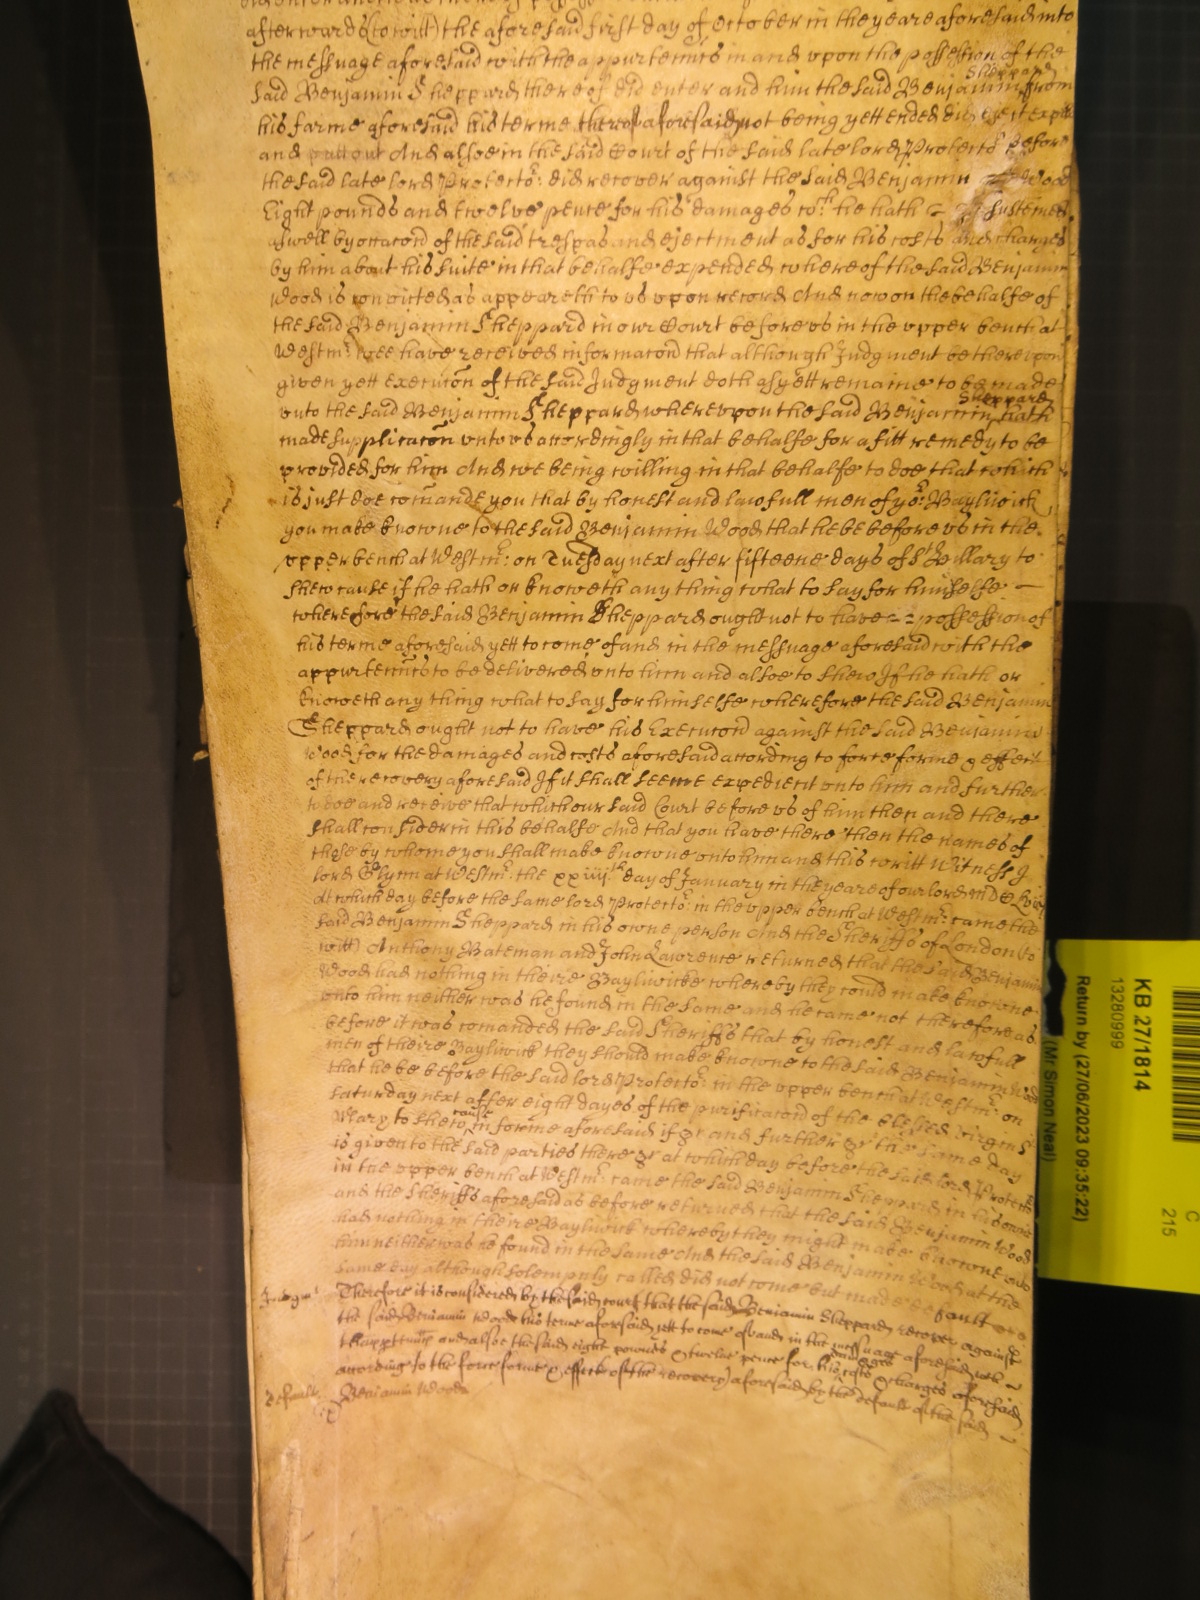 afterwards (to witt) the aforesaid first day of October in the yeare aforesaid into
the messuage aforesaid with the appurtennts in and upon the possession of the
said Benjamin Sheppard thereof did enter and him the said Benjamin Sheppard from
his farme aforesaid his terme thereof aforesaid not being yett ended did eject expell
and putt out And alsoe in the said Court of the said late lord Protector before
the said late lord Protector: did recover against the said Benjamin Wood
Eight pounds and twelve pence for his damages wch he hath susteined
aswell by occacon of the said trespas and ejectment as for his costs and charges
by him about his suite in that behalfe expended whereof the said Benjamin
Wood is convicted as appeareth to us upon record And now on the behalfe of
the said Benjamin Sheppard in our Court before us in the upper bench at
Westmr: wee have received informacon that although Judgment be thereupon
given yett execucon of the said Judgment doth as yett remaine to be made
unto the said Benjamin Sheppard whereupon the said Benjamin Sheppard hath
made supplicacon unto us accordingly in that behalfe for a fitt remedy to be
provided for him And we being willing in that behalfe to doe that which
is just doe comande you that by honest and lawfull men of yor: Bayliwick
you make knowne to the said Benjamin Wood that he be before us in the
upper bench at Westmr: on Tuesday next after fifteene days of St Hillary to
shew cause if he hath or knoweth any thing what to say for himselfe
wherefore the said Benjamin Sheppard ought not to have possession of
his terme aforesaid yett to come of and in the messuage aforesaid with the
appurtennts to be delivered unto him and alsoe to shew If he hath or
knoweth any thing what to say for himselfe wherefore the said Benjamin
Sheppard ought not to have his Execucon against the said Benjamin
Wood for the damages and costs aforesaid according to force forme & effect
of the recovery aforesaid If it shall seeme expedient unto him and further
to doe and receive that which our said Court before us of him then and there
shall consider in this behalfe And that you have there then the names of
those by whome you shall make knowne unto him and this writt Witness J.
lord Glynn at Westmr: the xxiiijth day of January in the yeare of our lord
At which day before the same lord Protector: in the upper bench at Westmr: came the
said Benjamin Sheppard in his owne person And the Sheriffs of London (to
witt) Anthony Bateman and John Lawrence returned that the said Benjamin
Wood had nothing in theire Bayliwicke whereby they could make knowne
unto him neither was he found in the same and he came not therefore as
before it was comanded the said Sheriffs that by honest and lawfull
men of theire Bayliwick they should make knowne to the said Benjamin Wood
that he be before the said lord Protector: in the upper bench at Westmr: on
Saturday next after eight dayes of the purificacon of the blessed virgin
Mary to shew cause in forme aforesaid if &c and further &c the same day
is given to the said parties there &c at which day before the said lord Protector
in the upper bench at Westmr: came the said Benjamin Sheppard in his owne
and the Sheriffs aforesaid as before returned that the said Benjamin Wood
had nothing in theire Bayliwick whereby they might make knowne unto
him neither was he found in the same And the said Benjamin Wood at the
same day although solempnly called did not come but made default
Judgmt Therefore it is considered by the said court that the said Benjamin Sheppard recover against
the said Benjamin Wood his terme aforesaid yett to come of and in the messuage aforesaid with
thappurtennts and alsoe the said eight pounds & twelve pence for his damages costs & charges aforesaid
according to the force forme & effect of the recovery aforesaid by the default of the said
Default Benjamin Wood
KB 27/1814
13280999
Return by (27/06/2023 09:35:22)
(Mr Simon Neal)
C
215